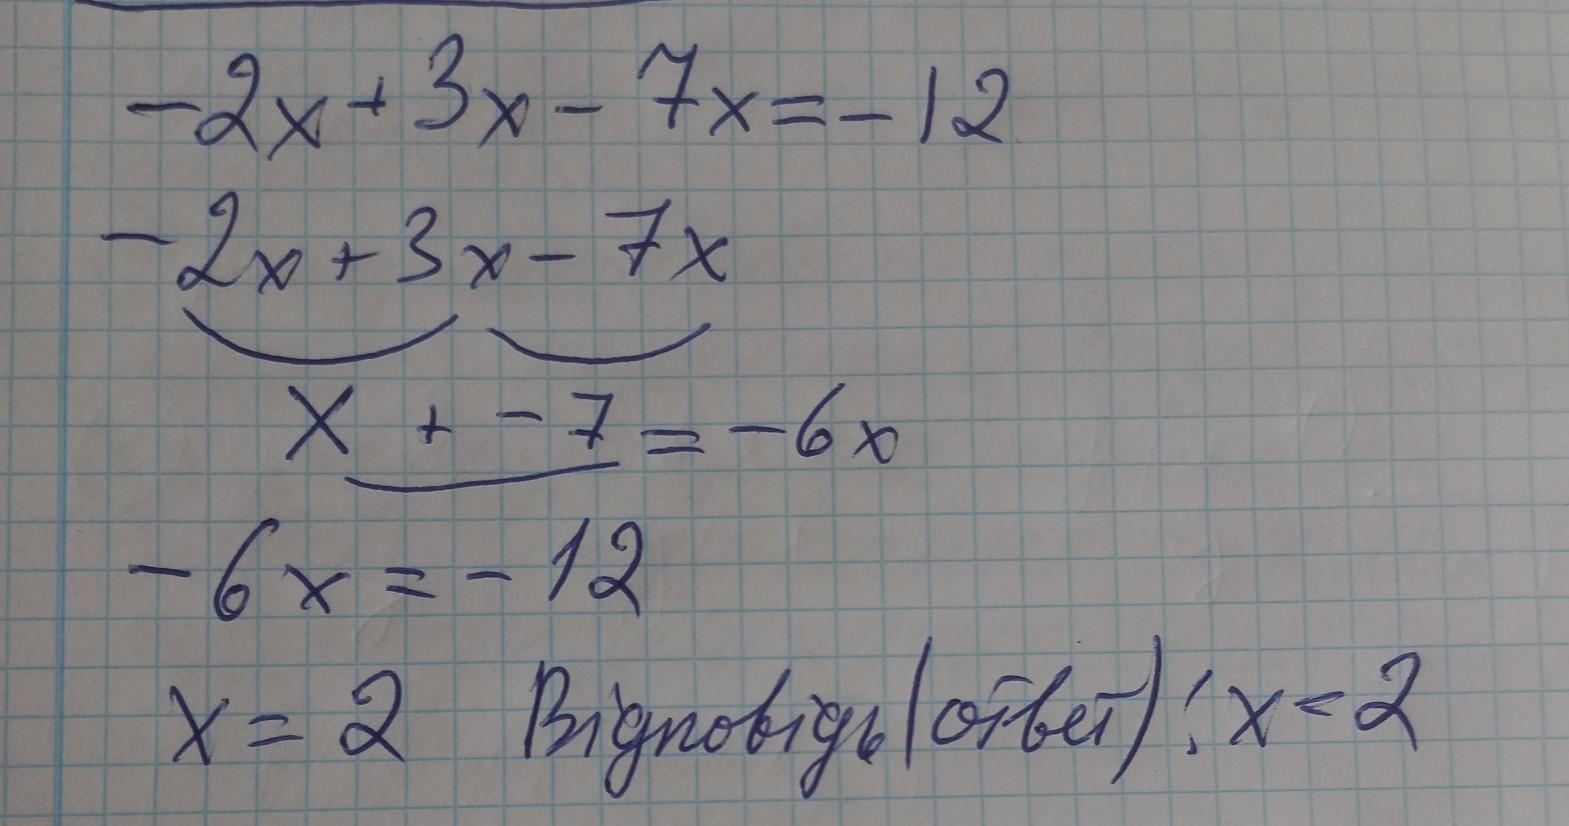 -2x+3x-7x=-12
-2x+3x-7x
x + -7 = -6x
-6x=-12
x=2 Відповідь(ответ): x=2